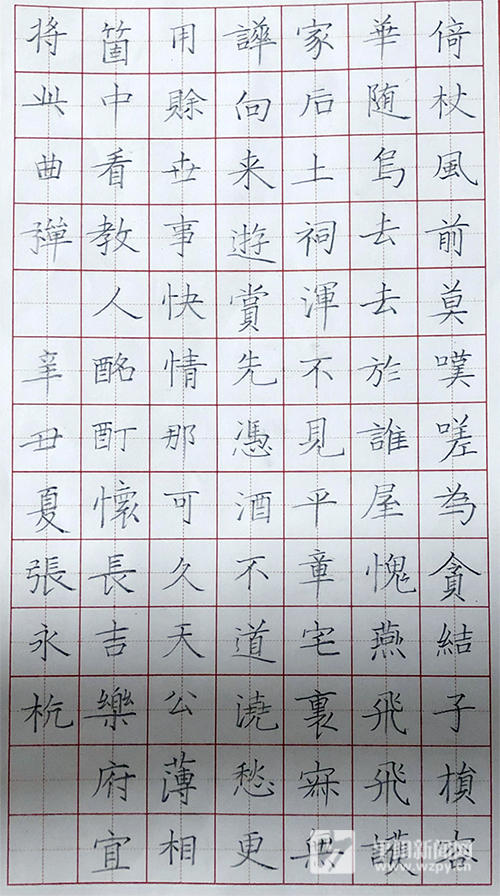 倚杖風前莫嘆嗟為貪結子損容
華随烏去去於誰屋愧燕飛飛護
家后土祠渾不見平章宅裏寂無
譁向来遊賞先憑酒不道澆愁更
用賒世事快情那可久天公薄相
箇中看教人酩酊懷長吉樂府宜
将此曲彈
辛丑夏張永杭
平阳新闻网
www.wzpy.cn